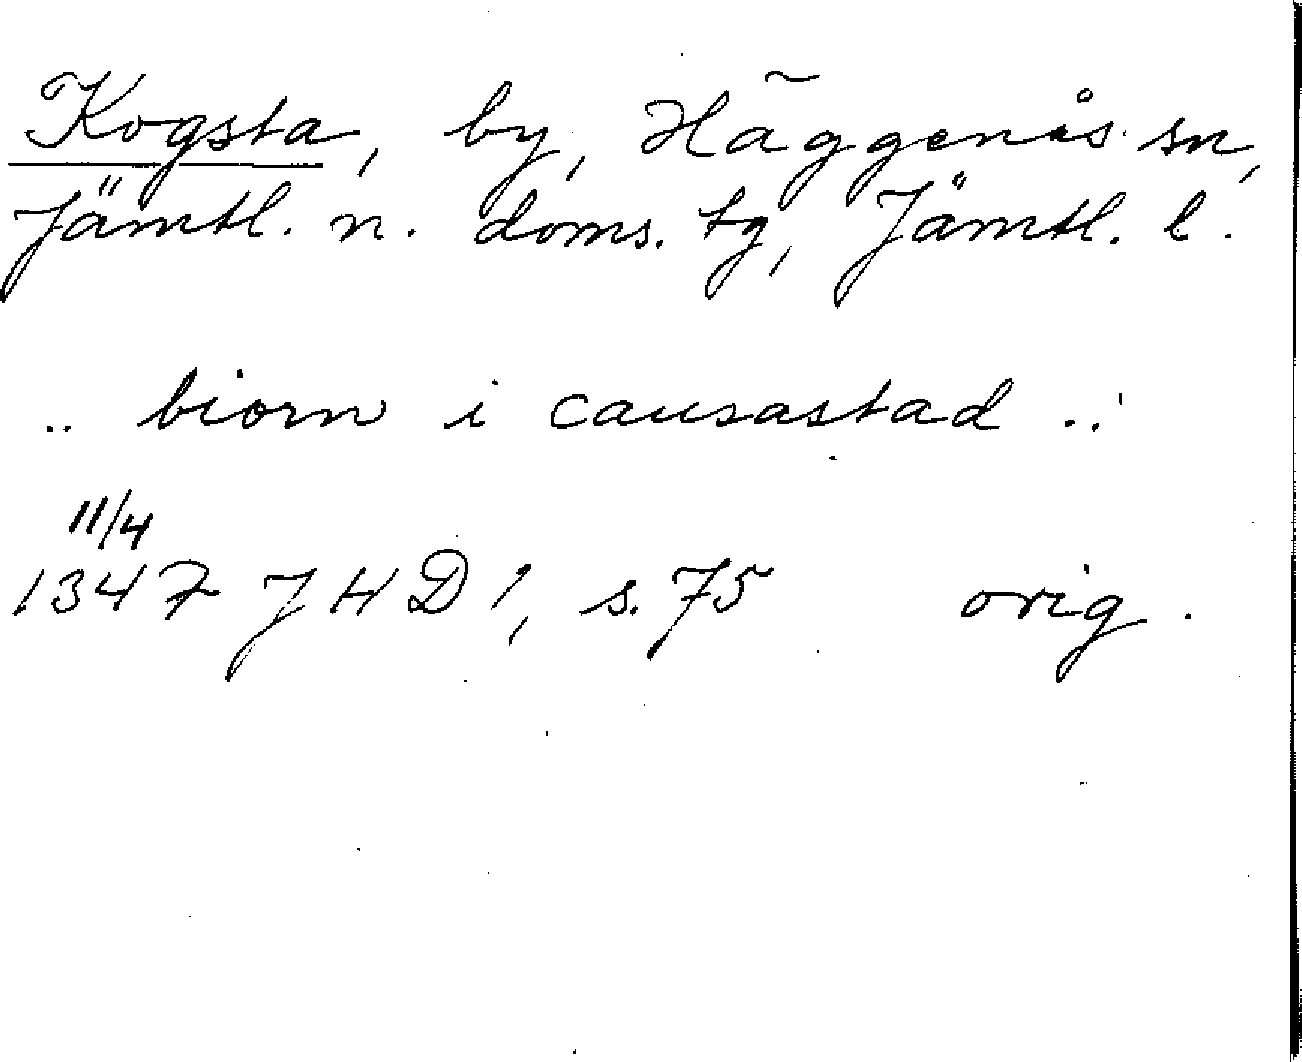 Kogsta, by, Häggenås sn,
Jämtl. n. doms. tg, Jämtl. l.
.. biorn i causastad ..
11/4
1347 JHD 1, s. 75 orig.